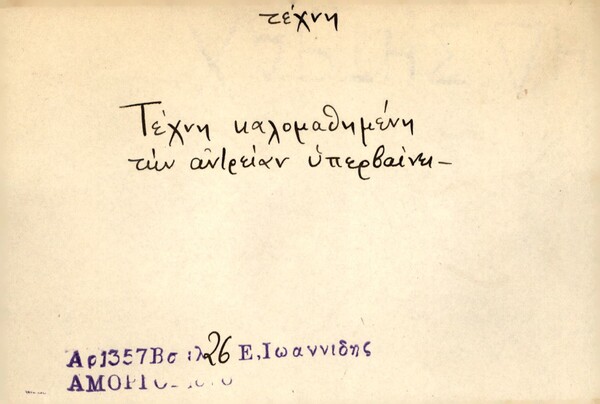 τέχνη
Τέχνη καλομαθημένη
τὴν ἀντρείαν ὑπερβαίνει–
Αρ1357Βσελ26 Ε,Ιωαννιδης